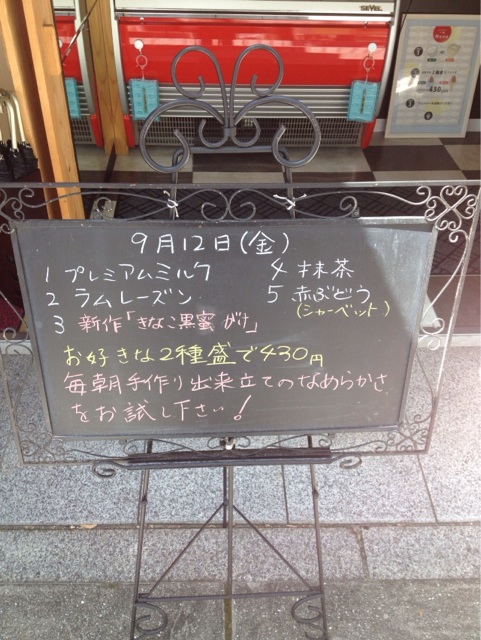 SEVEL
430円
9月12日(金)
1 プレミアムミルク
4 抹茶
2 ラムレーズン
5 赤ぶどう
(シャーベット)
3 新作「きなこ黒蜜がけ」
お好きな2種盛で430円
毎朝手作り出来立てのなめらかさ
をお試し下さい!